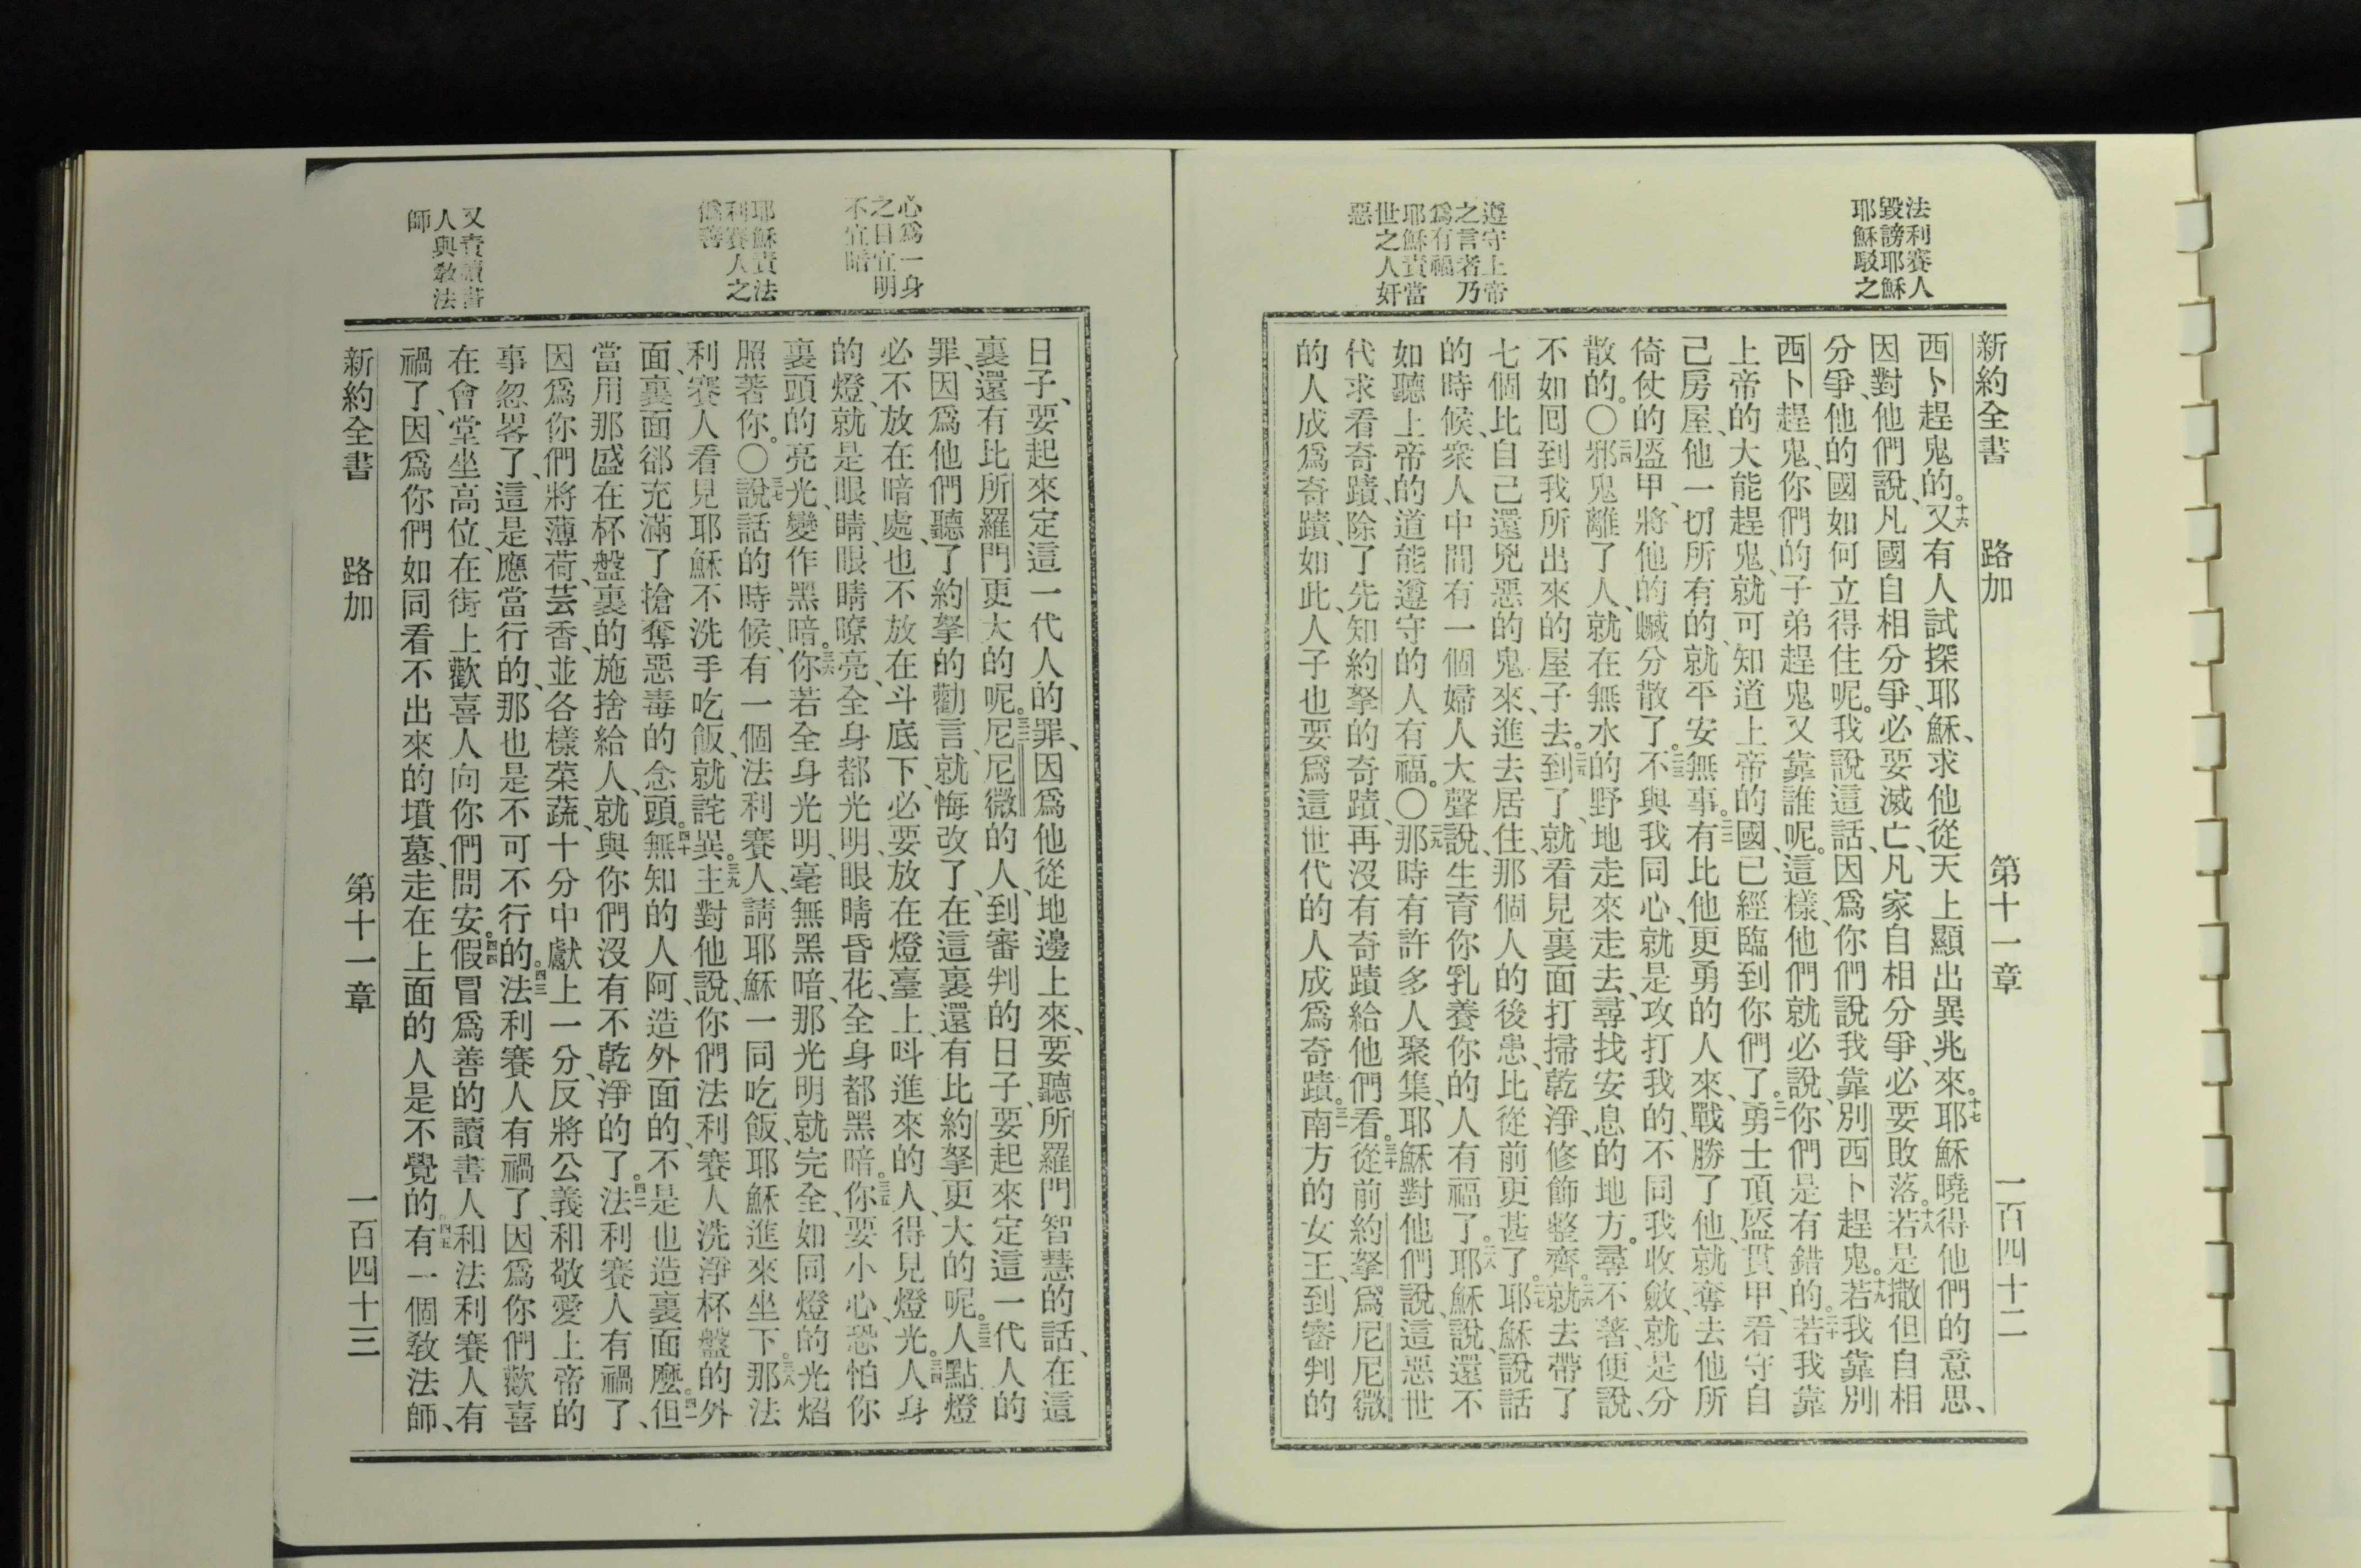 法利賽人
毀謗耶穌
耶穌駁之
遵守上帝
之言者乃
爲有福
耶穌責當
世之人奸
惡
新約全書 路加 第十一章 一百四十二
西卜趕鬼的。十六又有人試探耶穌、求他從天上顯出異兆來。十七耶穌曉得他們的意思、
因對他們說、凡國自相分爭、必要滅亡、凡家自相分爭、必要敗落。十八若是撒但自相
分爭、他的國如何立得住呢。我說這話、因爲你們說我靠別西卜趕鬼。十九若我靠別
西卜趕鬼、你們的子弟趕鬼又靠誰呢。這樣、他們就必說、你們是有錯的。二十若我靠
上帝的大能趕鬼、就可知道上帝的國、已經臨到你們了。二一勇士頂盔貫甲、看守自
己房屋、他一切所有的、就平安無事。二二有比他更勇的人來、戰勝了他、就奪去他所
倚仗的盔甲、將他的贓分散了。二三不與我同心、就是攻打我的、不同我收斂、就是分
散的。〇二四邪鬼離了人、就在無水的野地走來走去、尋找安息的地方。尋不著、便說、
不如囘到我所出來的屋子去。二五到了、就看見裏面打掃乾淨、修飾整齊。二六就去帶了
七個比自己還兇惡的鬼來、進去居住、那個人的後患、比從前更甚了。二七耶穌說話
的時候、衆人中間有一個婦人大聲說、生育你乳養你的人有福了。二八耶穌說、還不
如聽上帝的道能遵守的人有福。〇二九那時有許多人聚集、耶穌對他們說、這惡世
代求看奇蹟、除了先知約拏的奇蹟、再沒有奇蹟給他們看。三十從前約拏爲尼尼微
的人成爲奇蹟、如此、人子也要爲這世代的人成爲奇蹟。三一南方的女王、到審判的
心爲一身
之目宜明
不宜暗
耶穌責法
利賽人之
僞善
又責讀書
人與教法
師
日子、要起來定這一代人的罪、因爲他從地邊上來、要聽所羅門智慧的話、在這
裏還有比所羅門更大的呢。三二尼尼微的人、到審判的日子、要起來定這一代人的
罪、因爲他們聽了約拏的勸言、就悔改了、在這裏還有比約拏更大的呢。三三人點燈
必不放在暗處、也不放在斗底下、必要放在燈臺上、呌進來的人、得見燈光。三四人身
的燈、就是眼睛、眼睛暸亮、全身都光明、眼睛昏花、全身都黑暗。三五你要小心、恐怕你
裏頭的亮光、變作黑暗。三六你若全身光明、毫無黑暗、那光明就完全、如同燈的光焰
照著你。〇三七說話的時候、有一個法利賽人、請耶穌一同吃飯、耶穌進來坐下。三八那法
利賽人看見耶穌不洗手吃飯、就詫異。三九主對他說、你們法利賽人洗淨杯盤的外
面、裏面郤充滿了搶奪惡毒的念頭。四十無知的人阿、造外面的、不是也造裏面麼。四一但
當用那盛在杯盤裏的施捨給人、就與你們沒有不乾淨的了。四二法利賽人有禍了、
因爲你們將薄荷、芸香、並各樣菜蔬、十分中獻上一分、反將公義和敬愛上帝的
事忽畧了、這是應當行的、那也是不可不行的。四三法利賽人有禍了、因爲你們歡喜
在會堂坐高位、在街上歡喜人向你們問安。四四假冒爲善的讀書人和法利賽人有
禍了、因爲你們如同看不出來的墳墓、走在上面的人是不覺的。四五有一個教法師、
新約全書 路加 第十一章 一百四十三